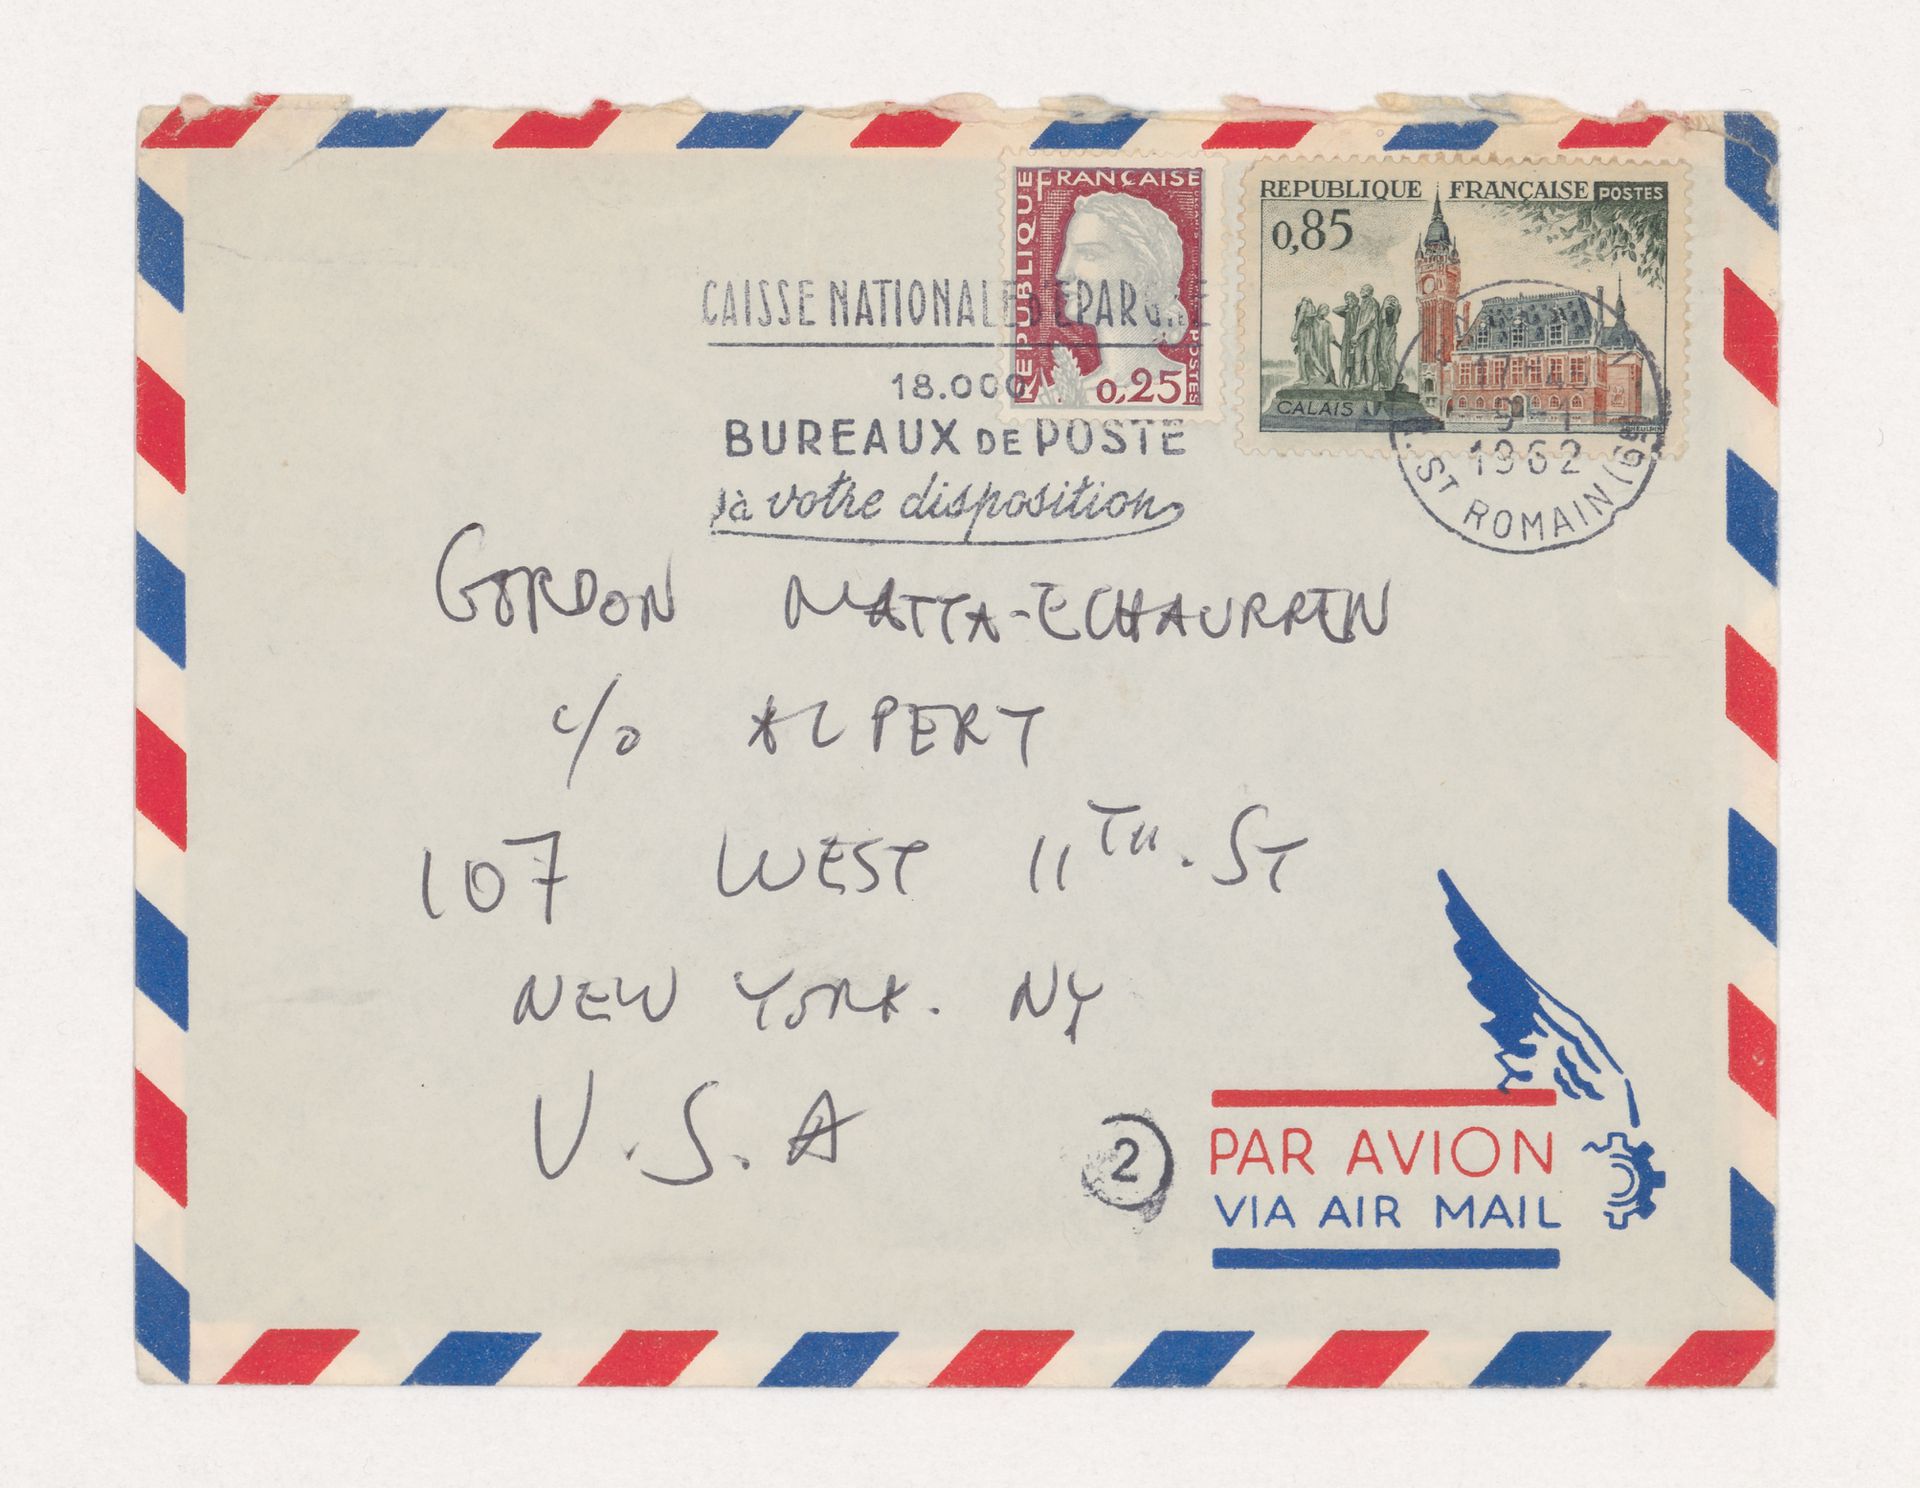 REPUBLIQUE FRANÇAISE
POSTES
0,25
REPUBLIQUE FRANÇAISE POSTES
0,85
CALAIS
CAISSE NATIONALE D'EPARGNE
18.000
BUREAUX DE POSTE
à votre disposition
1962
ST ROMAIN
GORDON MATTA-ECHAURREN
c/o ALPERT
107 WEST 11TH. ST
NEW YORK. NY
U.S.A
2
PAR AVION
VIA AIR MAIL